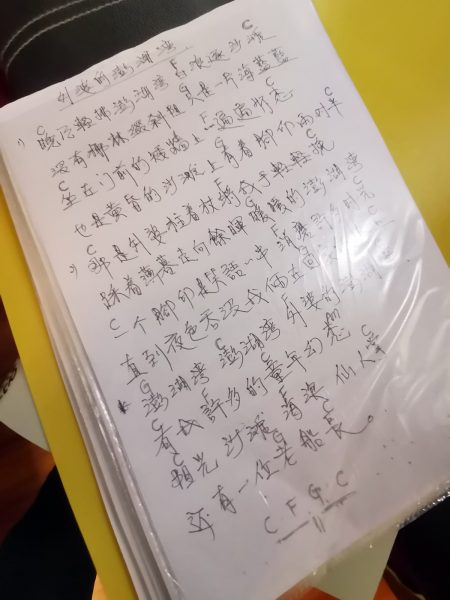 外婆的澎湖灣
C F C
1) 晚風輕拂澎湖灣 白浪逐沙灘
沒有椰林綴斜陽 只是一片海藍藍
C F C
坐在門前的矮牆上一遍遍懷想
G C
也是黃昏的沙灘上有着腳印兩對半
C F C
2) 那是外婆拄着杖將我手輕輕挽
踩着薄暮走向餘暉暖暖的澎湖灣
C F C
一个腳印是笑語一串消磨許多時光
G C
直到夜色吞沒我倆在回
C
澎湖灣 澎湖灣 外婆的澎湖灣
有我許多的童年幻想
C F C
陽光 沙灘 海浪 仙人掌
G C
还有一位老船長。
C F G C